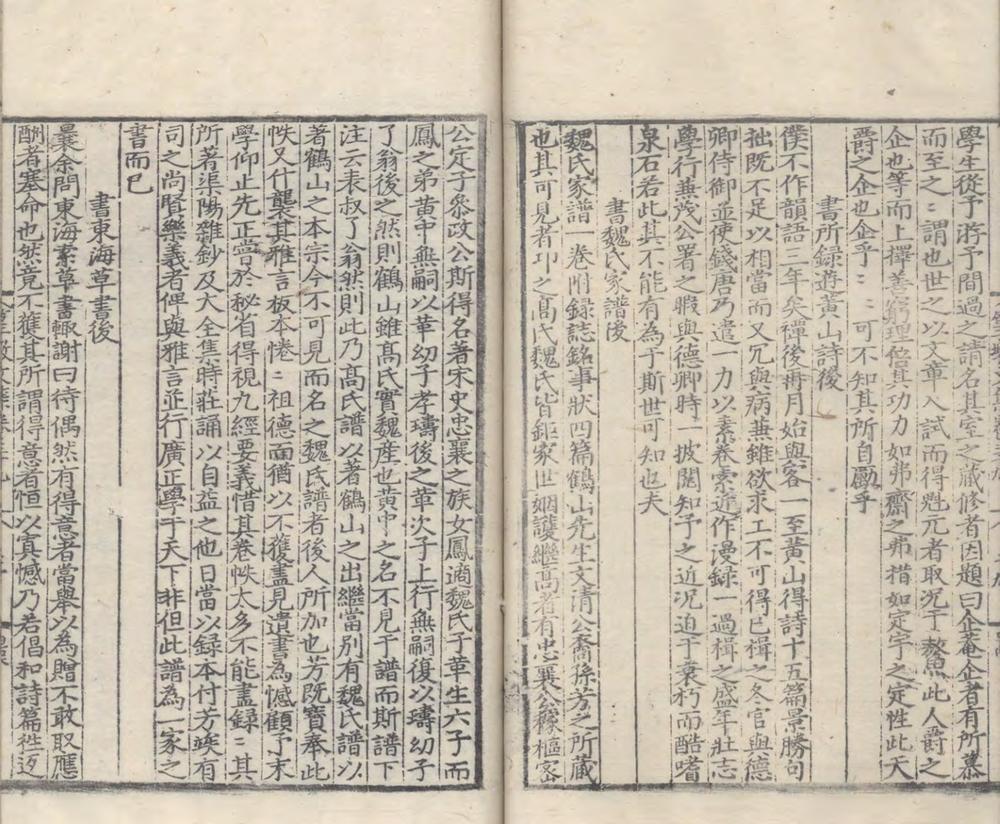 學生從予游予間過之請名其室之藏修者因題曰企菴企者有所慕
而至之〻謂也世之以文章入試而得魁元者取況于鰲此人爵之
企也等而上擇善窮理倍其功力如弗齋之弗措如定宇之定性此天
爵之企也企乎〻〻可不知其所自勵乎
書所録遊黃山詩後
僕不作韻語三年矣禫後再月始與客一至黃山得詩十五篇景勝句
拙既不足以相當而又冗與病兼雖欲求工不可得已楫之冬官與德
卿侍御並使錢唐乃遣一力以素卷索近作漫録一過楫之盛年壯志
學行兼茂公署之暇與德卿時一披閱知予之近况迫于衰朽而酷嗜
泉石若此其不能有為于斯世可知也夫
書魏氏家譜後
魏氏家譜一卷附録誌銘事狀四篇鶴山先生文清公裔孫芳之所藏
也其可見者卭之高氏魏氏皆鉅家世姻護繼高者有忠襄公稼樞宻
公定子叅政公斯得名著宋史忠襄之族女鳳適魏氏子革生六子而
鳳之弟黃中無嗣以革幼子孝璹後之革次子上行無嗣復以璹幼子
了翁後之然則鶴山雖高氏實魏産也黃中之名不見于譜而斯譜下
注云表叔了翁然則此乃高氏譜以著鶴山之出繼當别有魏氏譜以
著鶴山之本宗今不可見而名之魏氏譜者後人所加也芳既寶奉此
帙又什襲其雅言板本惓〻祖德面猶以不獲盡見遺書為憾顧予末
學仰止先正嘗於秘省得視九經要義惜其卷帙太多不能盡録〻其
所著渠陽雜鈔及大全集時莊誦以自益之他日當以録本付芳竢有
司之尚賢樂義者俾與雅言並行廣正學于天下非但此譜為一家之
書而已
書東海草書後
曩余問東海索草書輙謝曰待偶然有得意者當舉以為贈不敢取應
酬者塞命也然竟不獲其所謂得意者恒以寘憾乃若倡和詩篇徃返